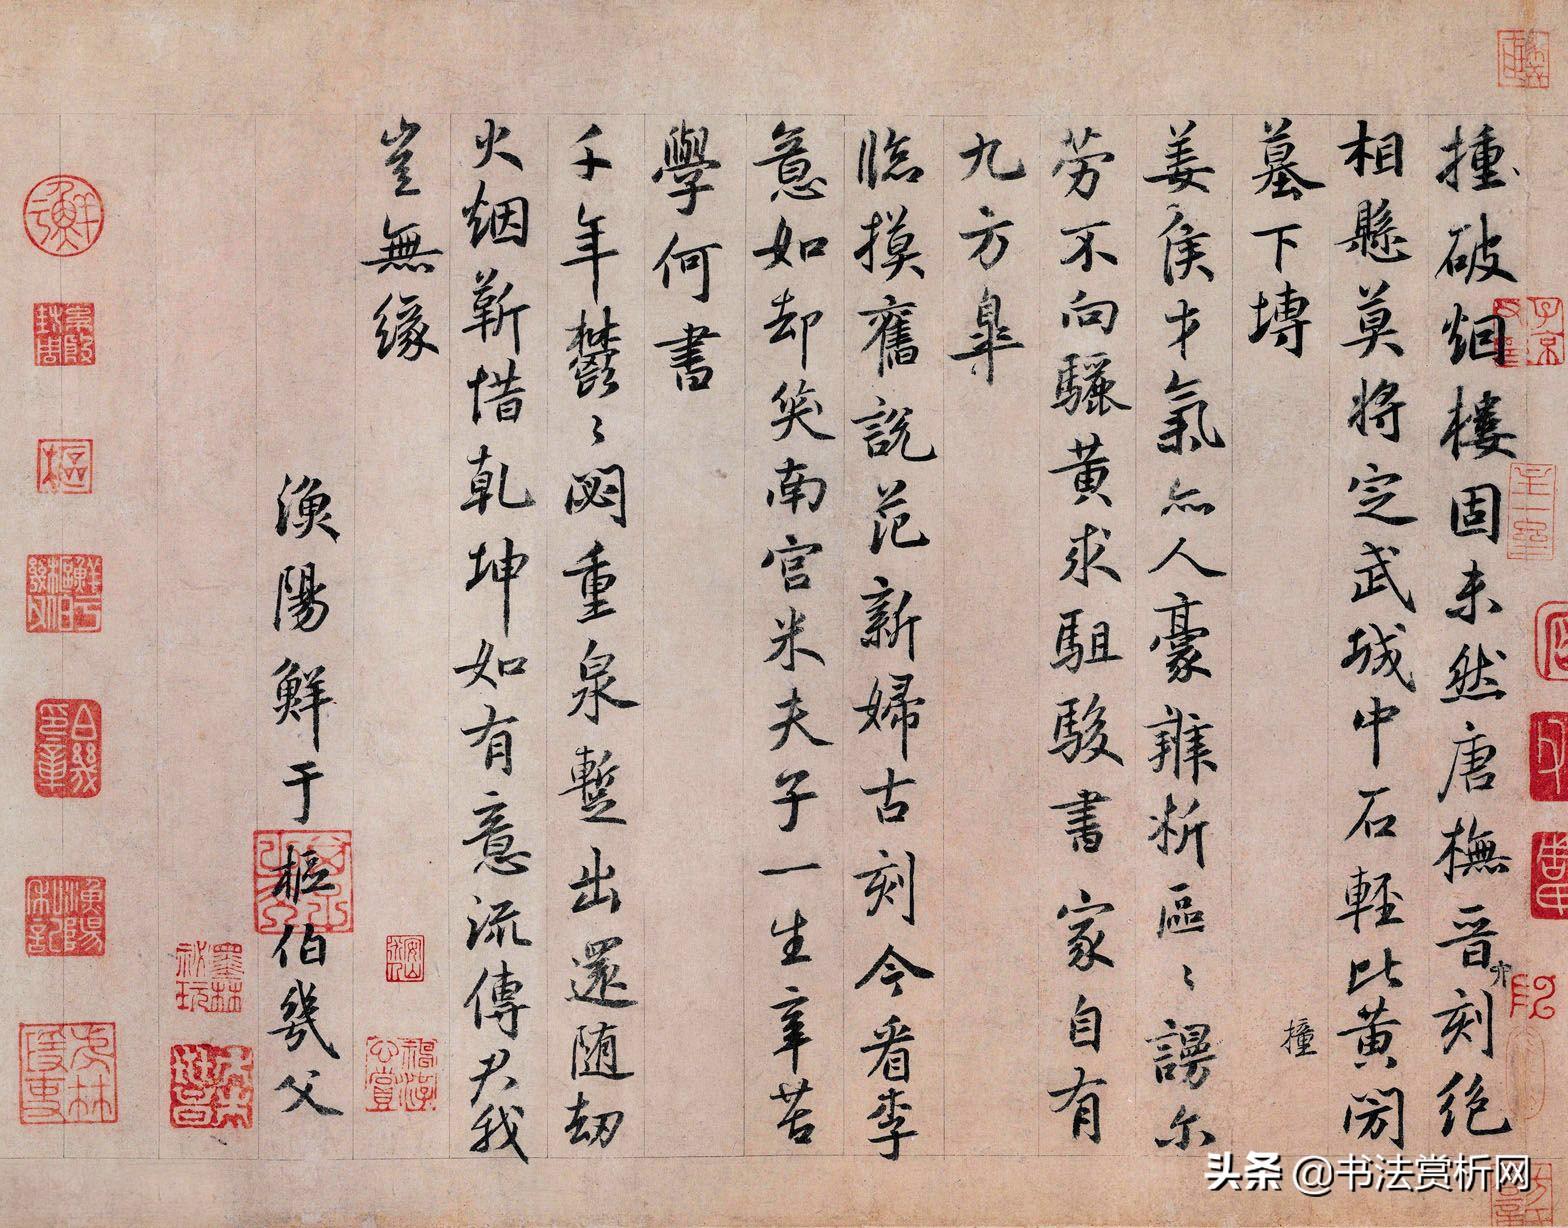 撞破烟樓固未然唐橅晉刻絶
相懸莫將定武城中石輕比黄閍
墓下塼
撞
姜侯才氣亦人豪辨析區〻謾尔
劳不向驪黄求駔駿書家自有
九方皐
臨摸舊說范新婦古刻今看李
意如却笑南宫米夫子一生辛苦
學何書
千年欝〻閟重泉暫出還随劫
火烟靳惜乹坤如有意流傳尹我
豈無缘
漁陽鮮于樞伯幾父
头条 @书法赏析网